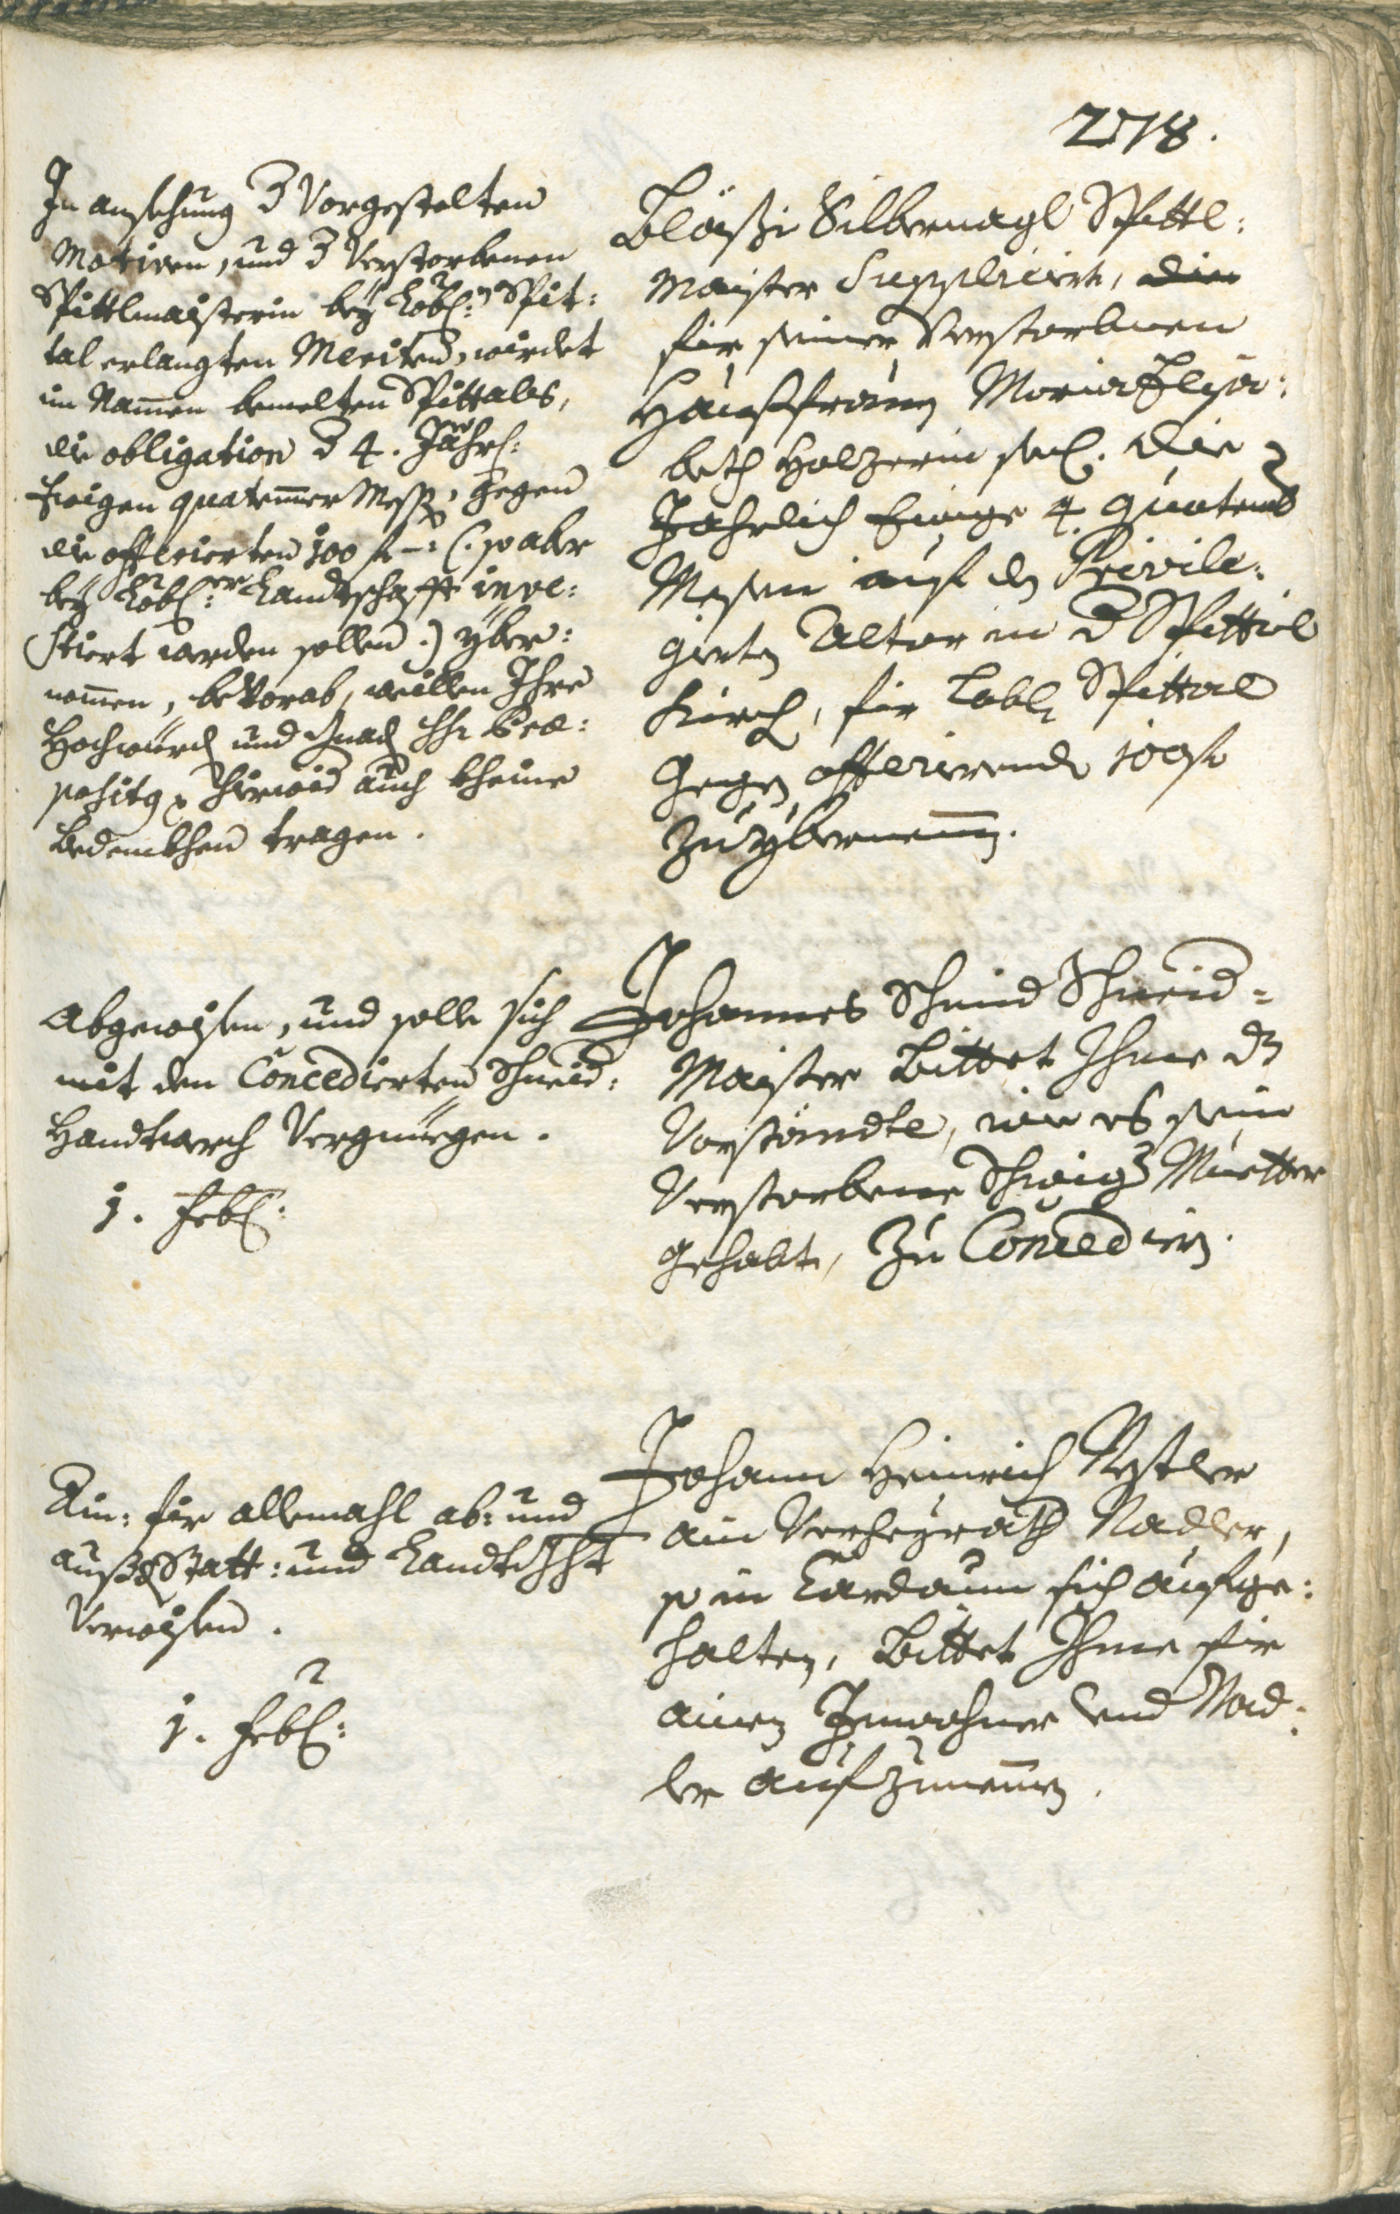 278.
In ansehung d Vorgestelten
Motiven, und d Verstorbenen
Spittlmaisterin bey Löbl: Spit:
tal erlangten Meriten, wirdet
im Namen bemelten Spittales,
die obligation d 4. Jährl:
Ewigen quatemer Mess, gegen
die offerierten 100 f –: (: so aber
bey Löbl:er Landtschafft inve:
stiert werden sollen :) yber:
nomen, bevorab, weillen Ihre
Hochwürd und Gnad Hr Prae:
positq hierwid auch kheine
bedenkhen tragen.
Bläsi Silbernagl Spittl:
Maister Suppliciert,
für seiner Verstorbnen
Haussfrauen Maria Elisa:
beth Holzerin seel. die
Jährlich Ewige 4 quatemb
Messen auf den Privile:
girten Altar in d Spittal
Kirch, für Löbl Spittal
gegen offerierende 100 f
zu ybernemen.
Abgewisen, und solle sich
mit den Concedierten Schneid:
Handtwerch Vergnüegen.
1. Feb:
Johannes Schmid Schneid=
Maister Bittet Ihme dz
Verständtl, wie es sein
Verstorbene Schwig Muetter
gehabt, zu Concediern.
Ain: für allemahl ab: und
auß d Statt: und Landtght
Verwisen.
1. Feb:
Johann Heinrich
ain Verheyrath Nadler,
so in Cardaun sich aufge:
halten, Bittet Ihme für
ainen Inwohner und Nad:
ler aufzunemen.